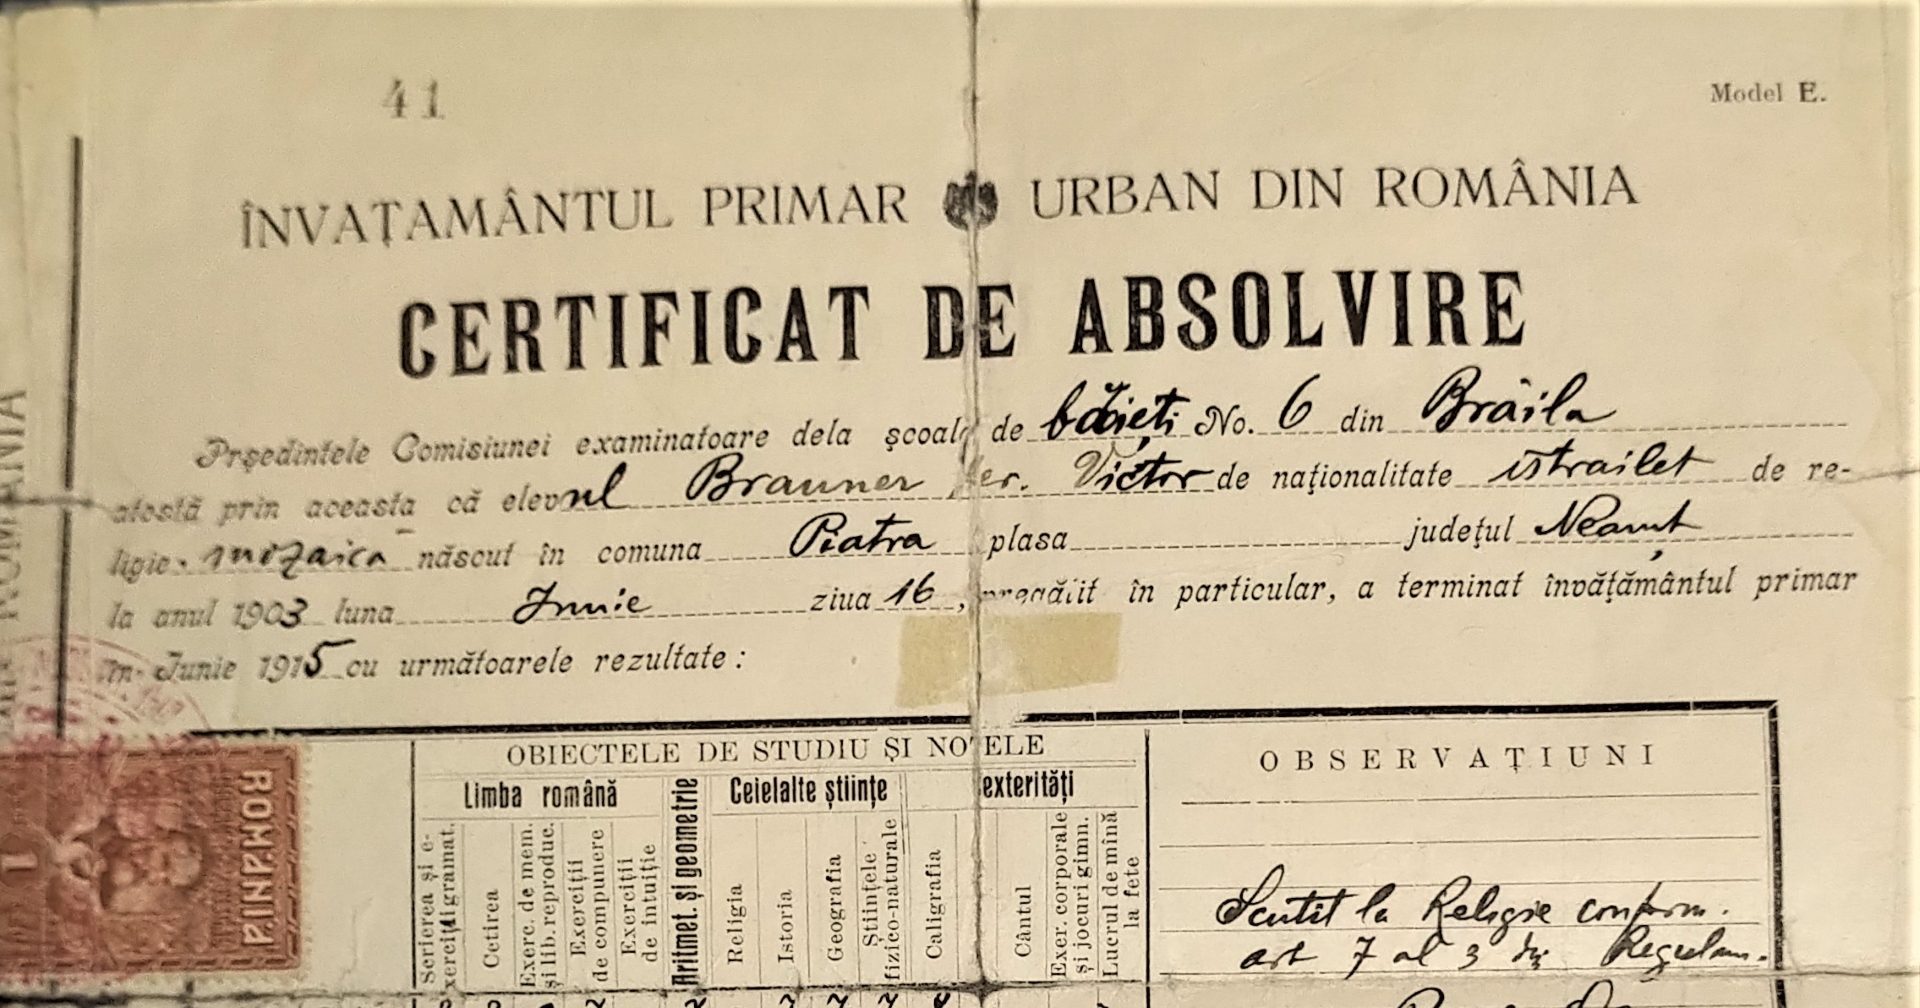 41
Model E.
ÎNVAȚAMÂNTUL PRIMAR URBAN DIN ROMÂNIA
CERTIFICAT DE ABSOLVIRE
Prședintele Comisiunei examinatoare dela școala de băieți No. 6 din Brăila
atestă prin aceasta că elevul Brauner Her. Victor de naționalitate istrailet de re-
ligie mozaică născut în comuna Piatra plasa județul Neamț
la anul 1903 luna Junie ziua 16, pregătit în particular, a terminat învățământul primar
în Junie 1915 cu următoarele rezultate:
OBIECTELE DE STUDIU ȘI NOTELE
OBSERVAȚIUNI
Limba română
Aritmet. și geometrie
Celelalte științe
exterități
Scrierea și e-
xerciții gramat.
Cetirea
Exerc. de mem.
și lib. reproduc.
Exerciții
de compunere
Exerciții
de intuiție
Religia
Istoria
Geografia
Științele
fizico-naturale
Caligrafia
Cântul
Exer. corporale
și jocuri gimn.
Lucrul de mînă
la fete
Scutit la Religie conform.
art 7 al 3 din Regulam.
ROMANIA
1